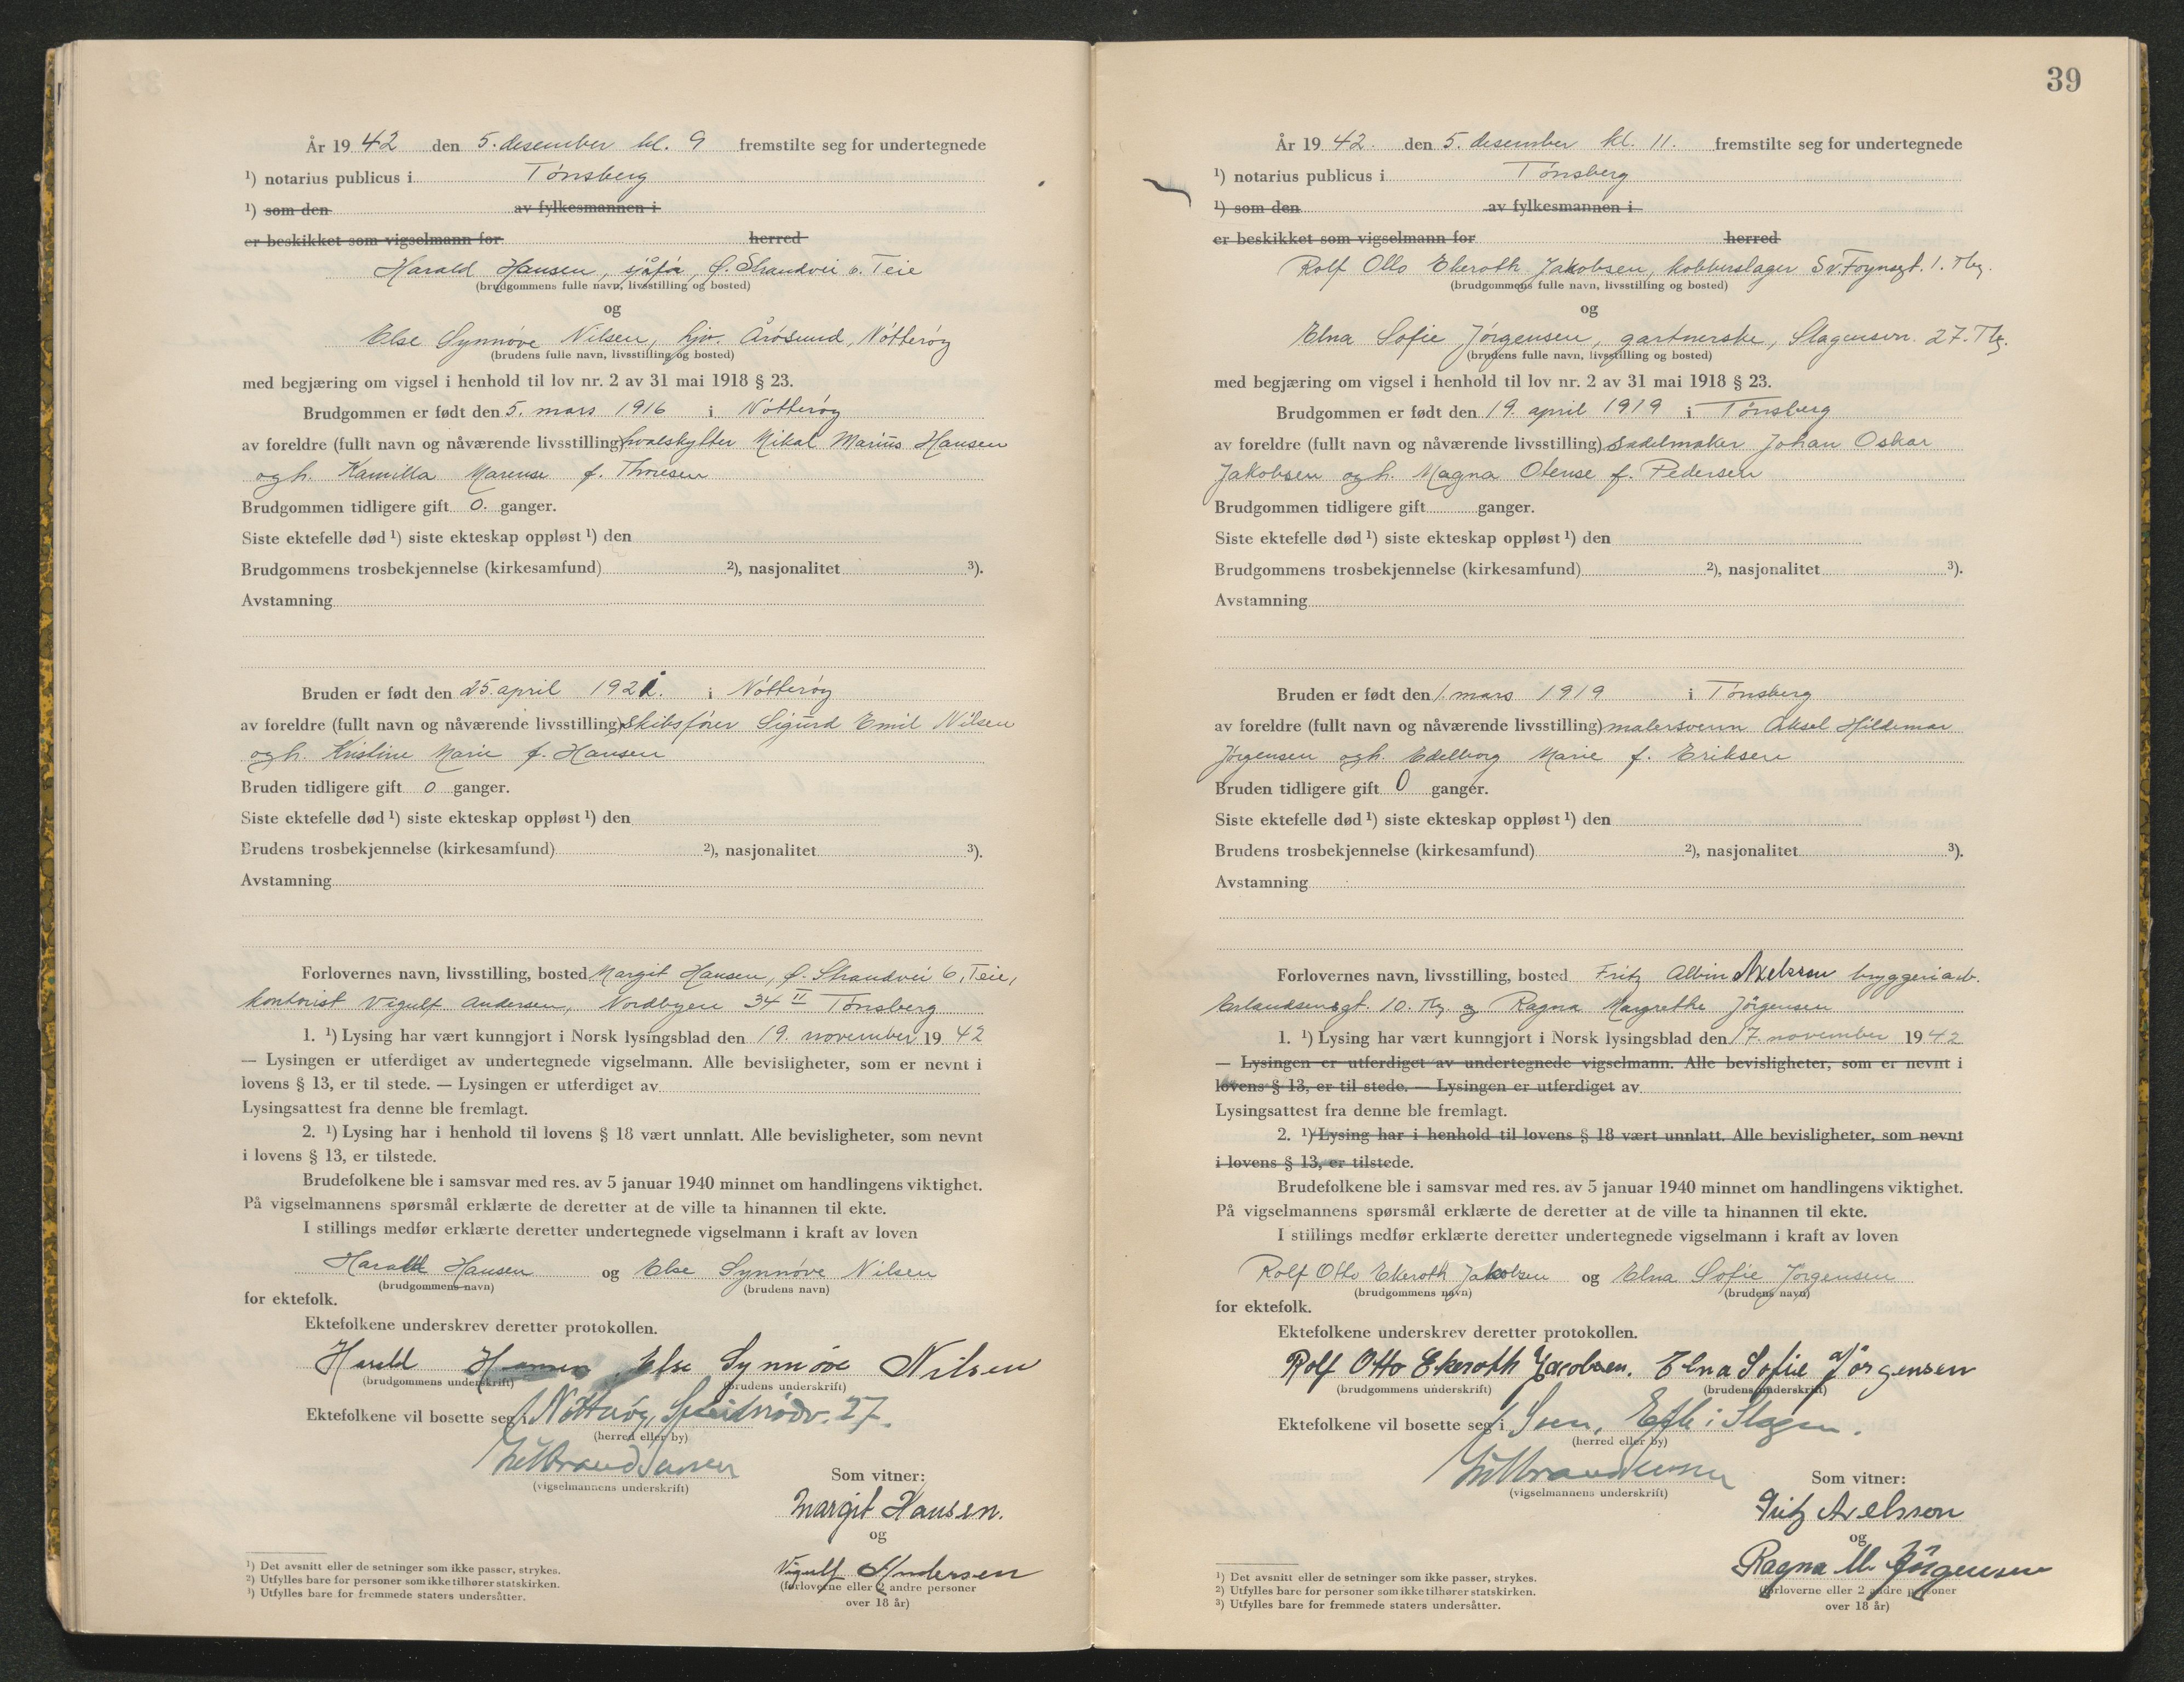 År 1942 den 5. desember kl. 9 fremstilte seg for undertegnede
¹) notarius publicus i Tønsberg
¹) som den av fylkesmannen i
er beskikket som vigselmann for herred
Harald Hansen, sjåfør, f. Strandvei 6. Teie
(brudgommens fulle navn, livsstilling og bosted)
og
Else Synnøve Nilsen, hjv. Årøsund, Nøtterøy
(brudens fulle navn, livsstilling og bosted)
med begjæring om vigsel i henhold til lov nr. 2 av 31 mai 1918 § 23.
Brudgommen er født den 5. mars 1916 i Nøtterøy
av foreldre (fullt navn og nåværende livsstilling) hvalskytter Mikal Marius Hansen
og h. Kamilla Marense f. Thoresen
Brudgommen tidligere gift 0. ganger.
Siste ektefelle død ¹) siste ekteskap oppløst ¹) den
Brudgommens trosbekjennelse (kirkesamfund) ²), nasjonalitet ³).
Avstamning
Bruden er født den 25. april 1921. i Nøtterøy
av foreldre (fullt navn og nåværende livsstilling) skibsfører Sigurd Emil Nilsen
og h. Kristine Marie f. Hansen
Bruden tidligere gift 0 ganger.
Siste ektefelle død ¹) siste ekteskap oppløst ¹) den
Brudens trosbekjennelse (kirkesamfund) ²), nasjonalitet ³).
Avstamning
Forlovernes navn, livsstilling, bosted Margit Hansen, f. Strandvei 6, Teie,
kontorist Vigulf Andersen, Nordbyen 34 II Tønsberg
1. ¹) Lysing har vært kunngjort i Norsk lysingsblad den 19. november 1942
— Lysingen er utferdiget av undertegnede vigselmann. Alle bevisligheter, som er nevnt i
lovens § 13, er til stede. — Lysingen er utferdiget av
Lysingsattest fra denne ble fremlagt.
2. ¹) Lysing har i henhold til lovens § 18 vært unnlatt. Alle bevisligheter, som nevnt
i lovens § 13, er tilstede.
Brudefolkene ble i samsvar med res. av 5 januar 1940 minnet om handlingens viktighet.
På vigselmannens spørsmål erklærte de deretter at de ville ta hinannen til ekte.
I stillings medfør erklærte deretter undertegnede vigselmann i kraft av loven
Harald Hansen og Else Synnøve Nilsen
(brudgommens navn) (brudens navn)
for ektefolk.
Ektefolkene underskrev deretter protokollen.
Harald Hansen Else Synnøve Nilsen
(brudgommens underskrift) (brudens underskrift)
Ektefolkene vil bosette seg i Nøtterøy, 27.
(herred eller by)
(vigselmannens underskrift)
Som vitner:
Margit Hansen.
og
Vigulf Andersen
(forloverne eller 2 andre personer
over 18 år)
¹) Det avsnitt eller de setninger som ikke passer, strykes.
²) Utfylles bare for personer som ikke tilhører statskirken.
³) Utfylles bare for fremmede staters undersåtter.
39
År 1942. den 5. desember kl. 11. fremstilte seg for undertegnede
¹) notarius publicus i Tønsberg
¹) som den av fylkesmannen i
er beskikket som vigselmann for herred
Rolf Otto Ekeroth Jakobsen, kobberslager Sv. Foynsgt. 1. Tbg.
(brudgommens fulle navn, livsstilling og bosted)
og
Elna Sofie Jørgensen, gartnerske, Slagensvn. 27. Tbg.
(brudens fulle navn, livsstilling og bosted)
med begjæring om vigsel i henhold til lov nr. 2 av 31 mai 1918 § 23.
Brudgommen er født den 19. april 1919 i Tønsberg
av foreldre (fullt navn og nåværende livsstilling) sadelmaker Johan Oskar
Jakobsen og h. Magna Otense f. Pedersen
Brudgommen tidligere gift ganger.
Siste ektefelle død ¹) siste ekteskap oppløst ¹) den
Brudgommens trosbekjennelse (kirkesamfund) ²), nasjonalitet ³).
Avstamning
Bruden er født den 1. mars 1919 i Tønsberg
av foreldre (fullt navn og nåværende livsstilling) malersvenn Aksel Hildemar
Jørgensen og h. Edelborg Marie f. Eriksen
Bruden tidligere gift 0 ganger.
Siste ektefelle død ¹) siste ekteskap oppløst ¹) den
Brudens trosbekjennelse (kirkesamfund) ²), nasjonalitet ³).
Avstamning
Forlovernes navn, livsstilling, bosted Fritz Albin Axelsson bryggeriarb.
Erlandsensgt. 10. Tbg. og Ragna Margrethe Jørgensen
1. ¹) Lysing har vært kunngjort i Norsk lysingsblad den 17. november 1942
— Lysingen er utferdiget av undertegnede vigselmann. Alle bevisligheter, som er nevnt i
lovens § 13, er til stede. — Lysingen er utferdiget av
Lysingsattest fra denne ble fremlagt.
2. ¹) Lysing har i henhold til lovens § 18 vært unnlatt. Alle bevisligheter, som nevnt
i lovens § 13, er tilstede.
Brudefolkene ble i samsvar med res. av 5 januar 1940 minnet om handlingens viktighet.
På vigselmannens spørsmål erklærte de deretter at de ville ta hinannen til ekte.
I stillings medfør erklærte deretter undertegnede vigselmann i kraft av loven
Rolf Otto Ekeroth Jakobsen og Elna Sofie Jørgensen
(brudgommens navn) (brudens navn)
for ektefolk.
Ektefolkene underskrev deretter protokollen.
Rolf Otto Ekeroth Jacobsen. Elna Sofie Jørgensen
(brudgommens underskrift) (brudens underskrift)
Ektefolkene vil bosette seg i Sem, Eik i Slagen.
(herred eller by)
(vigselmannens underskrift)
Som vitner:
Fritz Axelsson
og
Ragna M. Jørgensen
(forloverne eller 2 andre personer
over 18 år)
¹) Det avsnitt eller de setninger som ikke passer, strykes.
²) Utfylles bare for personer som ikke tilhører statskirken.
³) Utfylles bare for fremmede staters undersåtter.